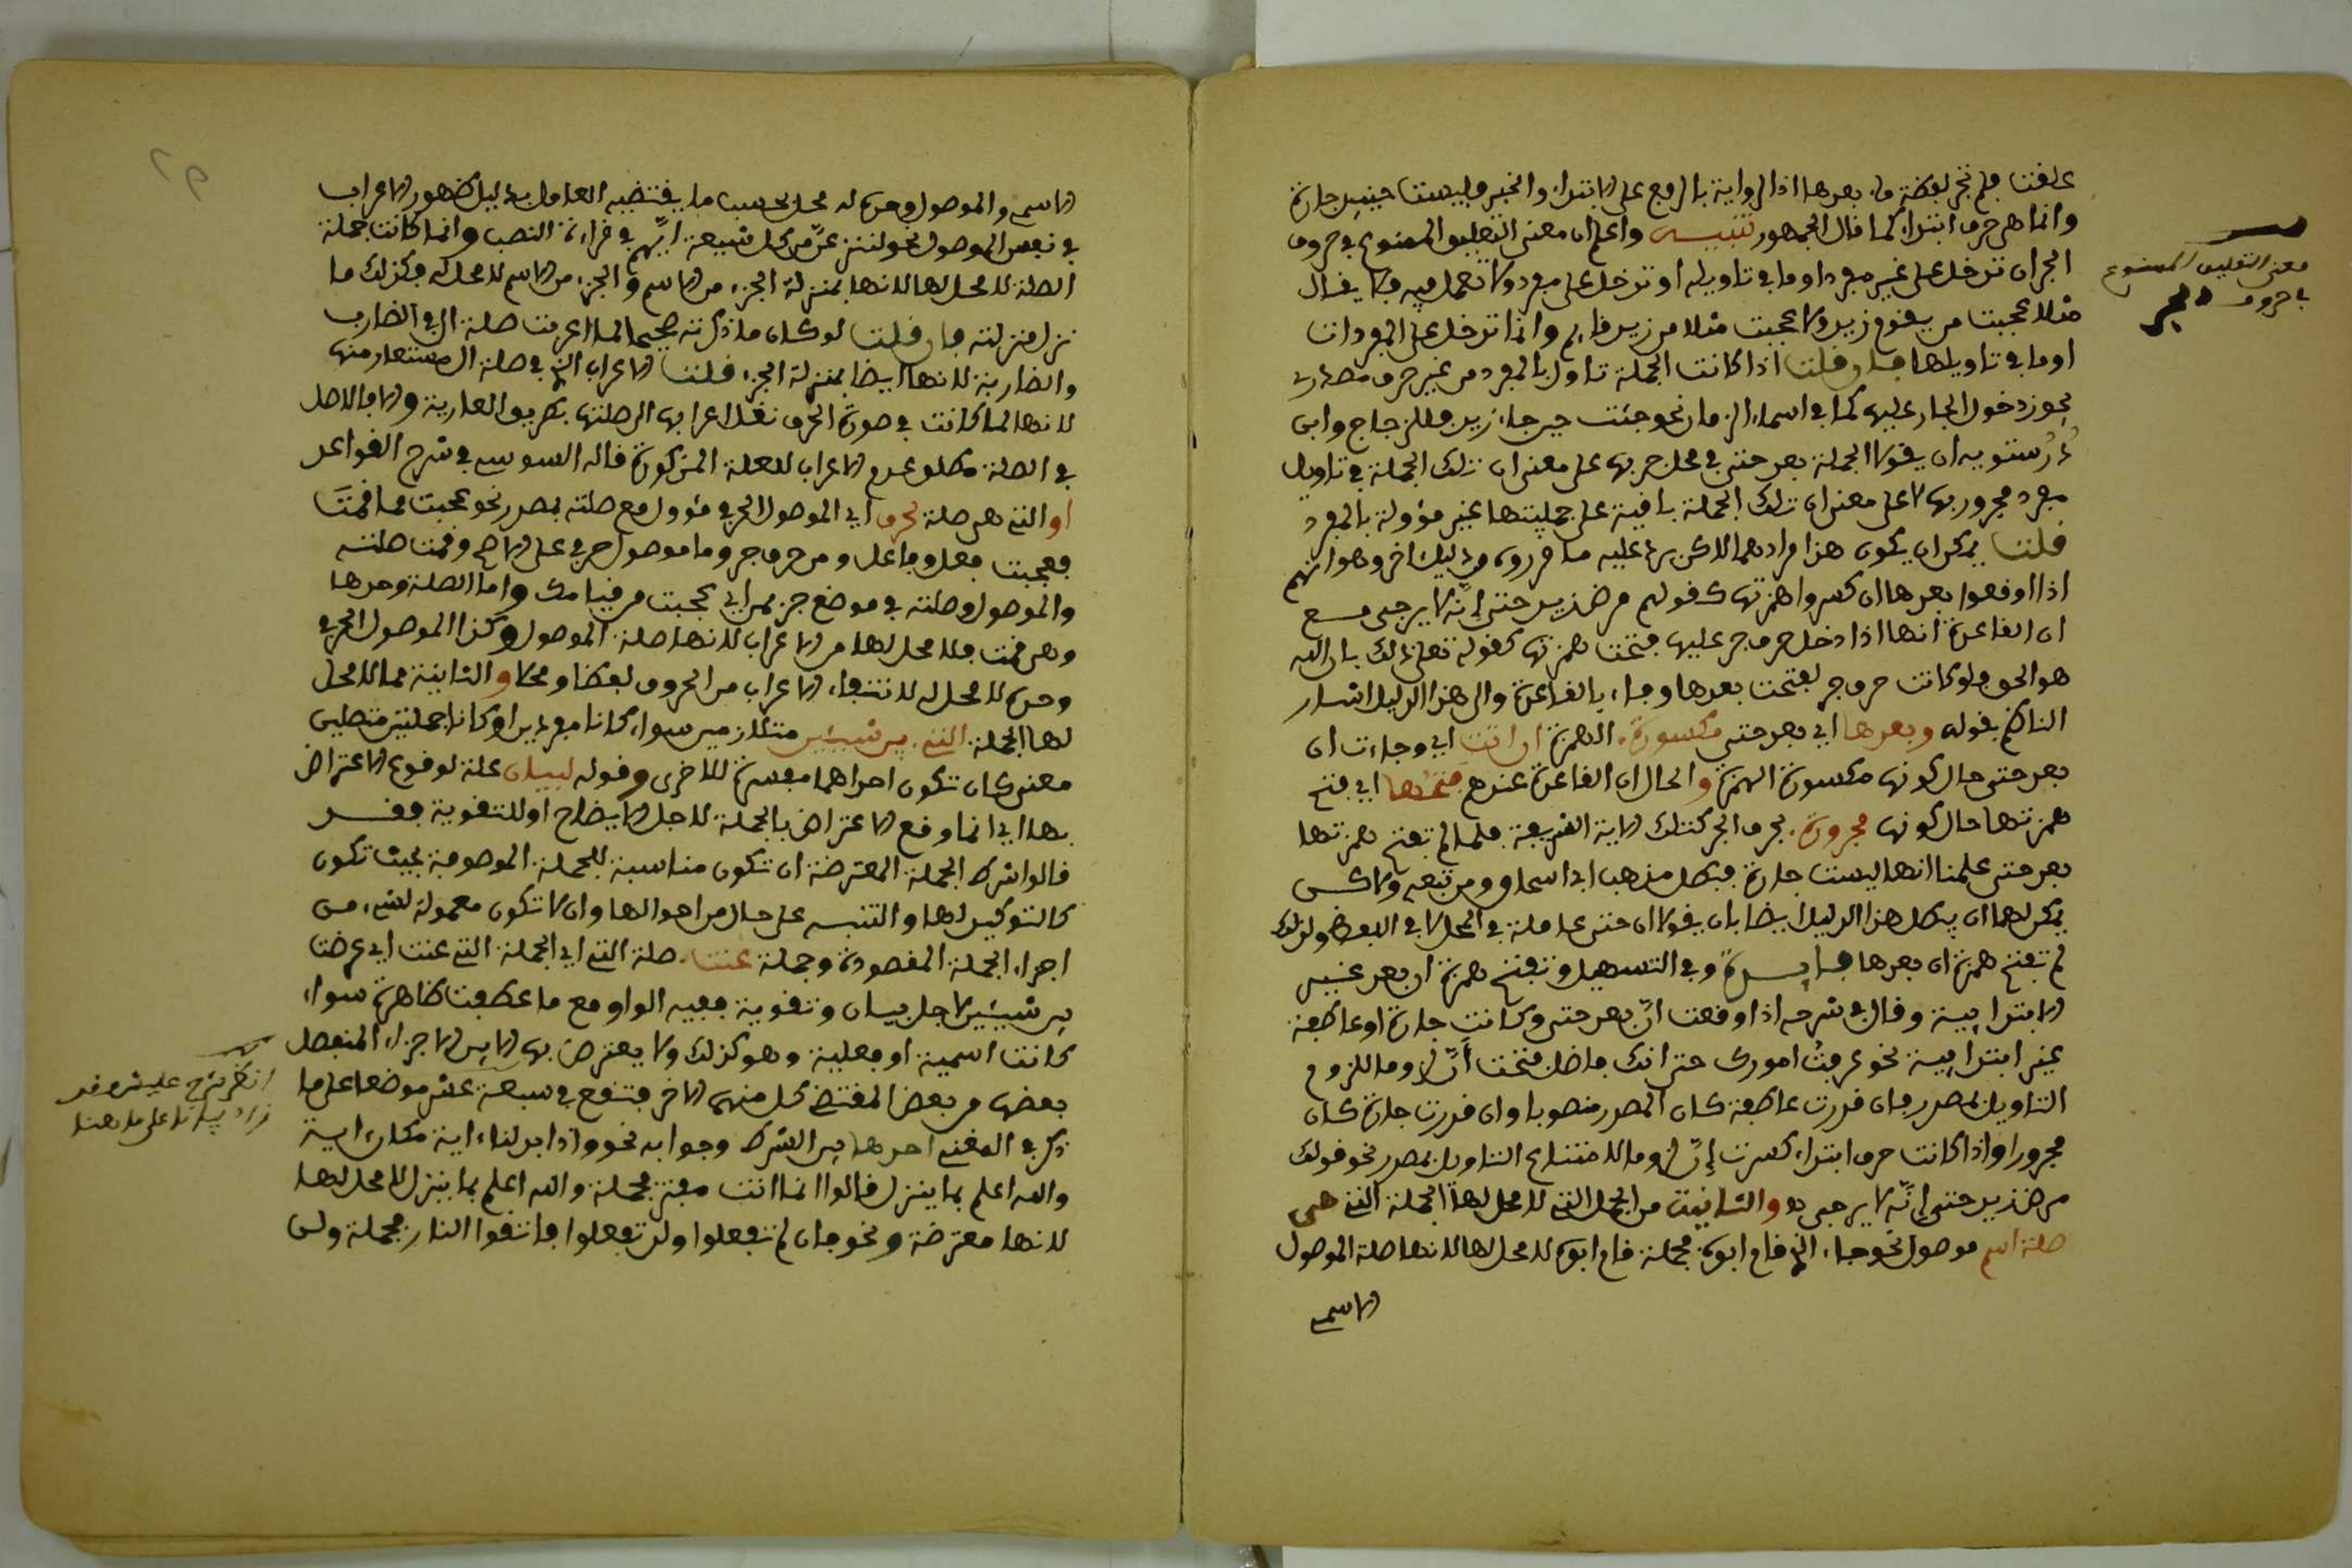 علقت فلم تجر لفظة ماء بعدها اذ الرواية بالرفع على الابتداء والخبر وليست حينئذ جارة
وانما هي حرف ابتداء كما قال الجمهور تنبيه واعلم ان معنى التعليق الممنوع في حروف
الجر ان تدخل على غير مفرد او ما في تاويله او تدخل على مفرد ولا تعمل فيه فلا يقال
مثلا عجبت من يقوم زيد ولا عجبت مثلا من زيد قايم وانما تدخل على المفردات
او ما في تاويلها فان قلت اذا كانت الجملة تاول بالمفرد من غير حرف مصدري
يجوز دخول الجار عليها كما في اسماء الزمان نحو جئت حين جاء زيد فللزجاج وابن
دُرُستويه ان يقولا الجملة بعد حتى في محل جر بها على معنى ان تلك الجملة في تاويل
مفرد مجرور بها لا على معنى ان تلك الجملة باقية على جمليتها غير مؤولة بالمفرد
قلت يمكن ان يكون هذا مرادهما لاكن يرد عليه ما قرروه من دليل اخر وهو انهم
اذا اوقعوا بعدها ان كسروا همزتها كقولهم مرض زيد حتى إنّه لا يرجى مع
ان القاعدة انها اذا دخل حرف جر عليها فتحت همزتها كقوله تعلى ذلك بان الله
هو الحق ولو كانت حرف جر لفتحت بعدها وفاء بالقاعدة والى هذا الدليل اشار
الناظم بقوله وبعدها اي بعد حتى مكسورة الهمزة ان اتت اي وجاءت ان
بعد حتى حال كونها مكسورة الهمزة والحال ان القاعدة عندهم فتحها اي فتح
همزتها حال كونها مجرورة بحرف الجر كتلك الاية الشريفة فلما لم تفتح همزتها
بعد حتى علمنا انها ليست جارة فبطل مذهب ابي اسحاق ومن تبعه ولاكن
يمكن لهما ان يبطل هذا الدليل ايضا بان يقولا ان حتى عاملة في المحل لا في اللفظ ولذلك
لم تفتح همزة ان بعدها فايدة وفي التسهيل وتفتح همزة ان بعد غير
الابتدايية وقال في شرحه اذا وقعت انّ بعد حتى وكانت جارة او عاطفة
غير ابتدايية نحو عرفتُ امورك حتى انك فاضل فتحت أنّ لزوما للزوم
التاويل بمصدر فان قدرت عاطفة كان المصدر منصوبا وان قدرت جارة كان
مجرورا واذا كانت حرف ابتداء كسرت إنّ لزوما لامتناع التاويل بمصدر نحو قولك
مرض زيد حتى إنّه لا يرجى والثانية من الجمل التي لا محل لها الجملة التي هي
صلة اسم موصول نحو جاء الذي قام ابوه فجملة قام ابوه لا محل لها لانها صلة الموصول
الاسمي
معنى التعليق الممنوع
في حروف الجر
الاسمي والموصول وحده له محل بحسب ما يقتضيه العامل بدليل ظهور الاعراب
في نفس الموصول نحو لننزعنّ من كل شيعة ايّهم في قراءة النصب وانما كانت جملة
الصلة لا محل لها لانها بمنزلة الجزء من الاسم والجزء من الاسم لا محل له فكذلك ما
نزل منزلته فان قلت لو كان ما ذكرته صحيحا لما اعربت صلة ال في الضارب
والضاربة لانها ايضا بمنزلة الجزء قلت الاعراب الذي في صلة ال مستعار منها
لانها لما كانت في صورة الحرف نقل اعرابها الى صلتها بطريق العارية والا فالاصل
في الصلة مطلقا عدم الاعراب للعلة المذكورة قاله السوسي في شرح القواعد
او التي هي صلة لحرف اي الموصول الحرفي مؤول مع صلته بمصدر نحو عجبت مما قمتَ
فعجبت فعل وفاعل ومن حرف جر وما موصول حرفي على الاصح وقمت صلته
والموصول وصلته في موضع جر بمن اي عجبت من قيامك واما الصلة وحدها
وهي قمت فلا محل لها من الاعراب لانها صلة الموصول وكذا الموصول الحرفي
وحده لا محل له لانتفاء الاعراب من الحروف لفظا ومحلا والثانية مما لا محل
لها الجملة التي بين شيئين متلازمين سواء كانا مفردين او كانا جملتين متصلين
معنى كان تكون احداهما مفسرة للاخرى وقوله لبيان علة لوقوع الاعتراض
بها اي انما وقع الاعتراض بالجملة لاجل الايضاح او للتقوية فقد
قالوا شرط الجملة المعترضة ان تكون مناسبة للجملة الموصوفة بحيث تكون
كالتوكيد لها والتنبيه على حال من احوالها وان لا تكون معمولة لشيء من
اجزاء الجملة المقصودة وجملة عنت صلة التي اي الجملة التي عنت اي عرضت
بين شيئين لاجل بيان وتقوية ففيه الواو مع ما عطفت ظاهرة سواء
كانت اسمية او فعلية وهو كذلك ولا يعترض بها الا بين الاجزاء المنفصل
بعضها من بعض المقتضي كل منهما الاخر فتقع في سبعة عشر موضعا على ما
ذكر في المغني احدها بين الشرط وجوابه نحو واذا بدلنا ءاية مكان ءاية
والله اعلم بما ينزل قالوا انما انت مفتر فجملة والله اعلم بما ينزل لا محل لها
لانها معترضة ونحو فان لم تفعلوا ولن تفعلوا فاتقوا النار فجملة ولن
انظر شرح عليش وقد
زاد على ما هنا